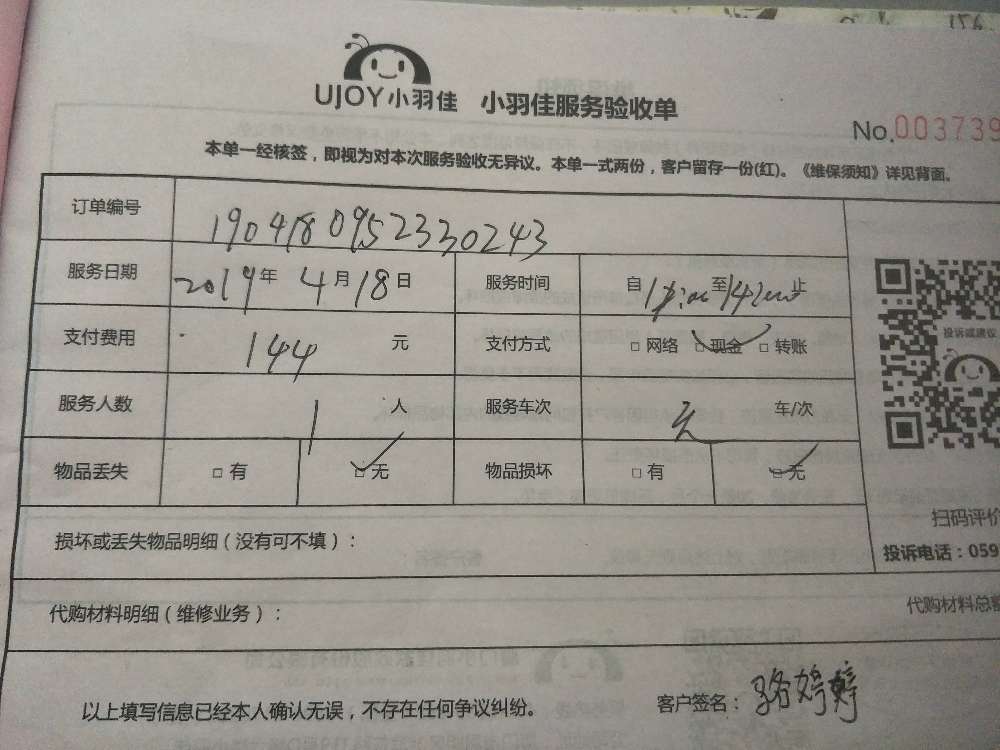 UJOY小羽佳 小羽佳服务验收单
No.003739
本单一经核签，即视为对本次服务验收无异议。本单一式两份，客户留存一份(红)。《维保须知》详见背面。
订单编号 1904180952330243
服务日期 2019年 4月18日 服务时间 自 至 止
支付费用 144 元 支付方式 □网络 □现金 □转账
服务人数 1 人 服务车次 无 车/次
物品丢失 □有 □无 物品损坏 □有 □无
投诉或建议
扫码评价
投诉电话：059
损坏或丢失物品明细（没有可不填）：
代购材料明细（维修业务）：
代购材料总额
以上填写信息已经本人确认无误，不存在任何争议纠纷。 客户签名：骆婷婷